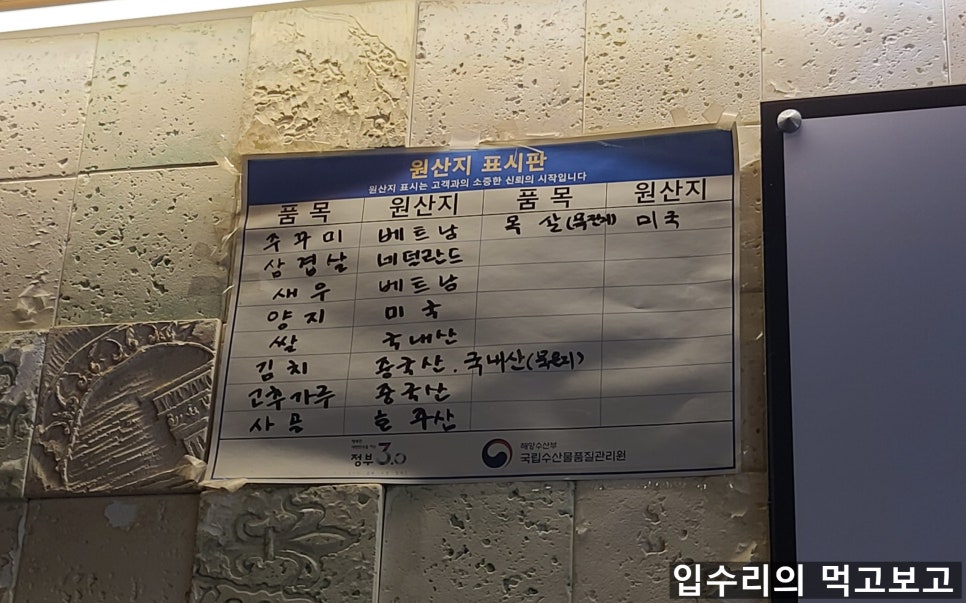 원산지 표시판
원산지 표시는 고객과의 소중한 신뢰의 시작입니다
품목 원산지 품목 원산지
주꾸미 베트남 목살(목전지) 미국
삼겹살 네덜란드
새우 베트남
양지 미국
쌀 국내산
김치 중국산. 국내산(묵은지)
고추가루 중국산
사골
정부3.0
해양수산부
국립수산물품질관리원
입수리의 먹고보고